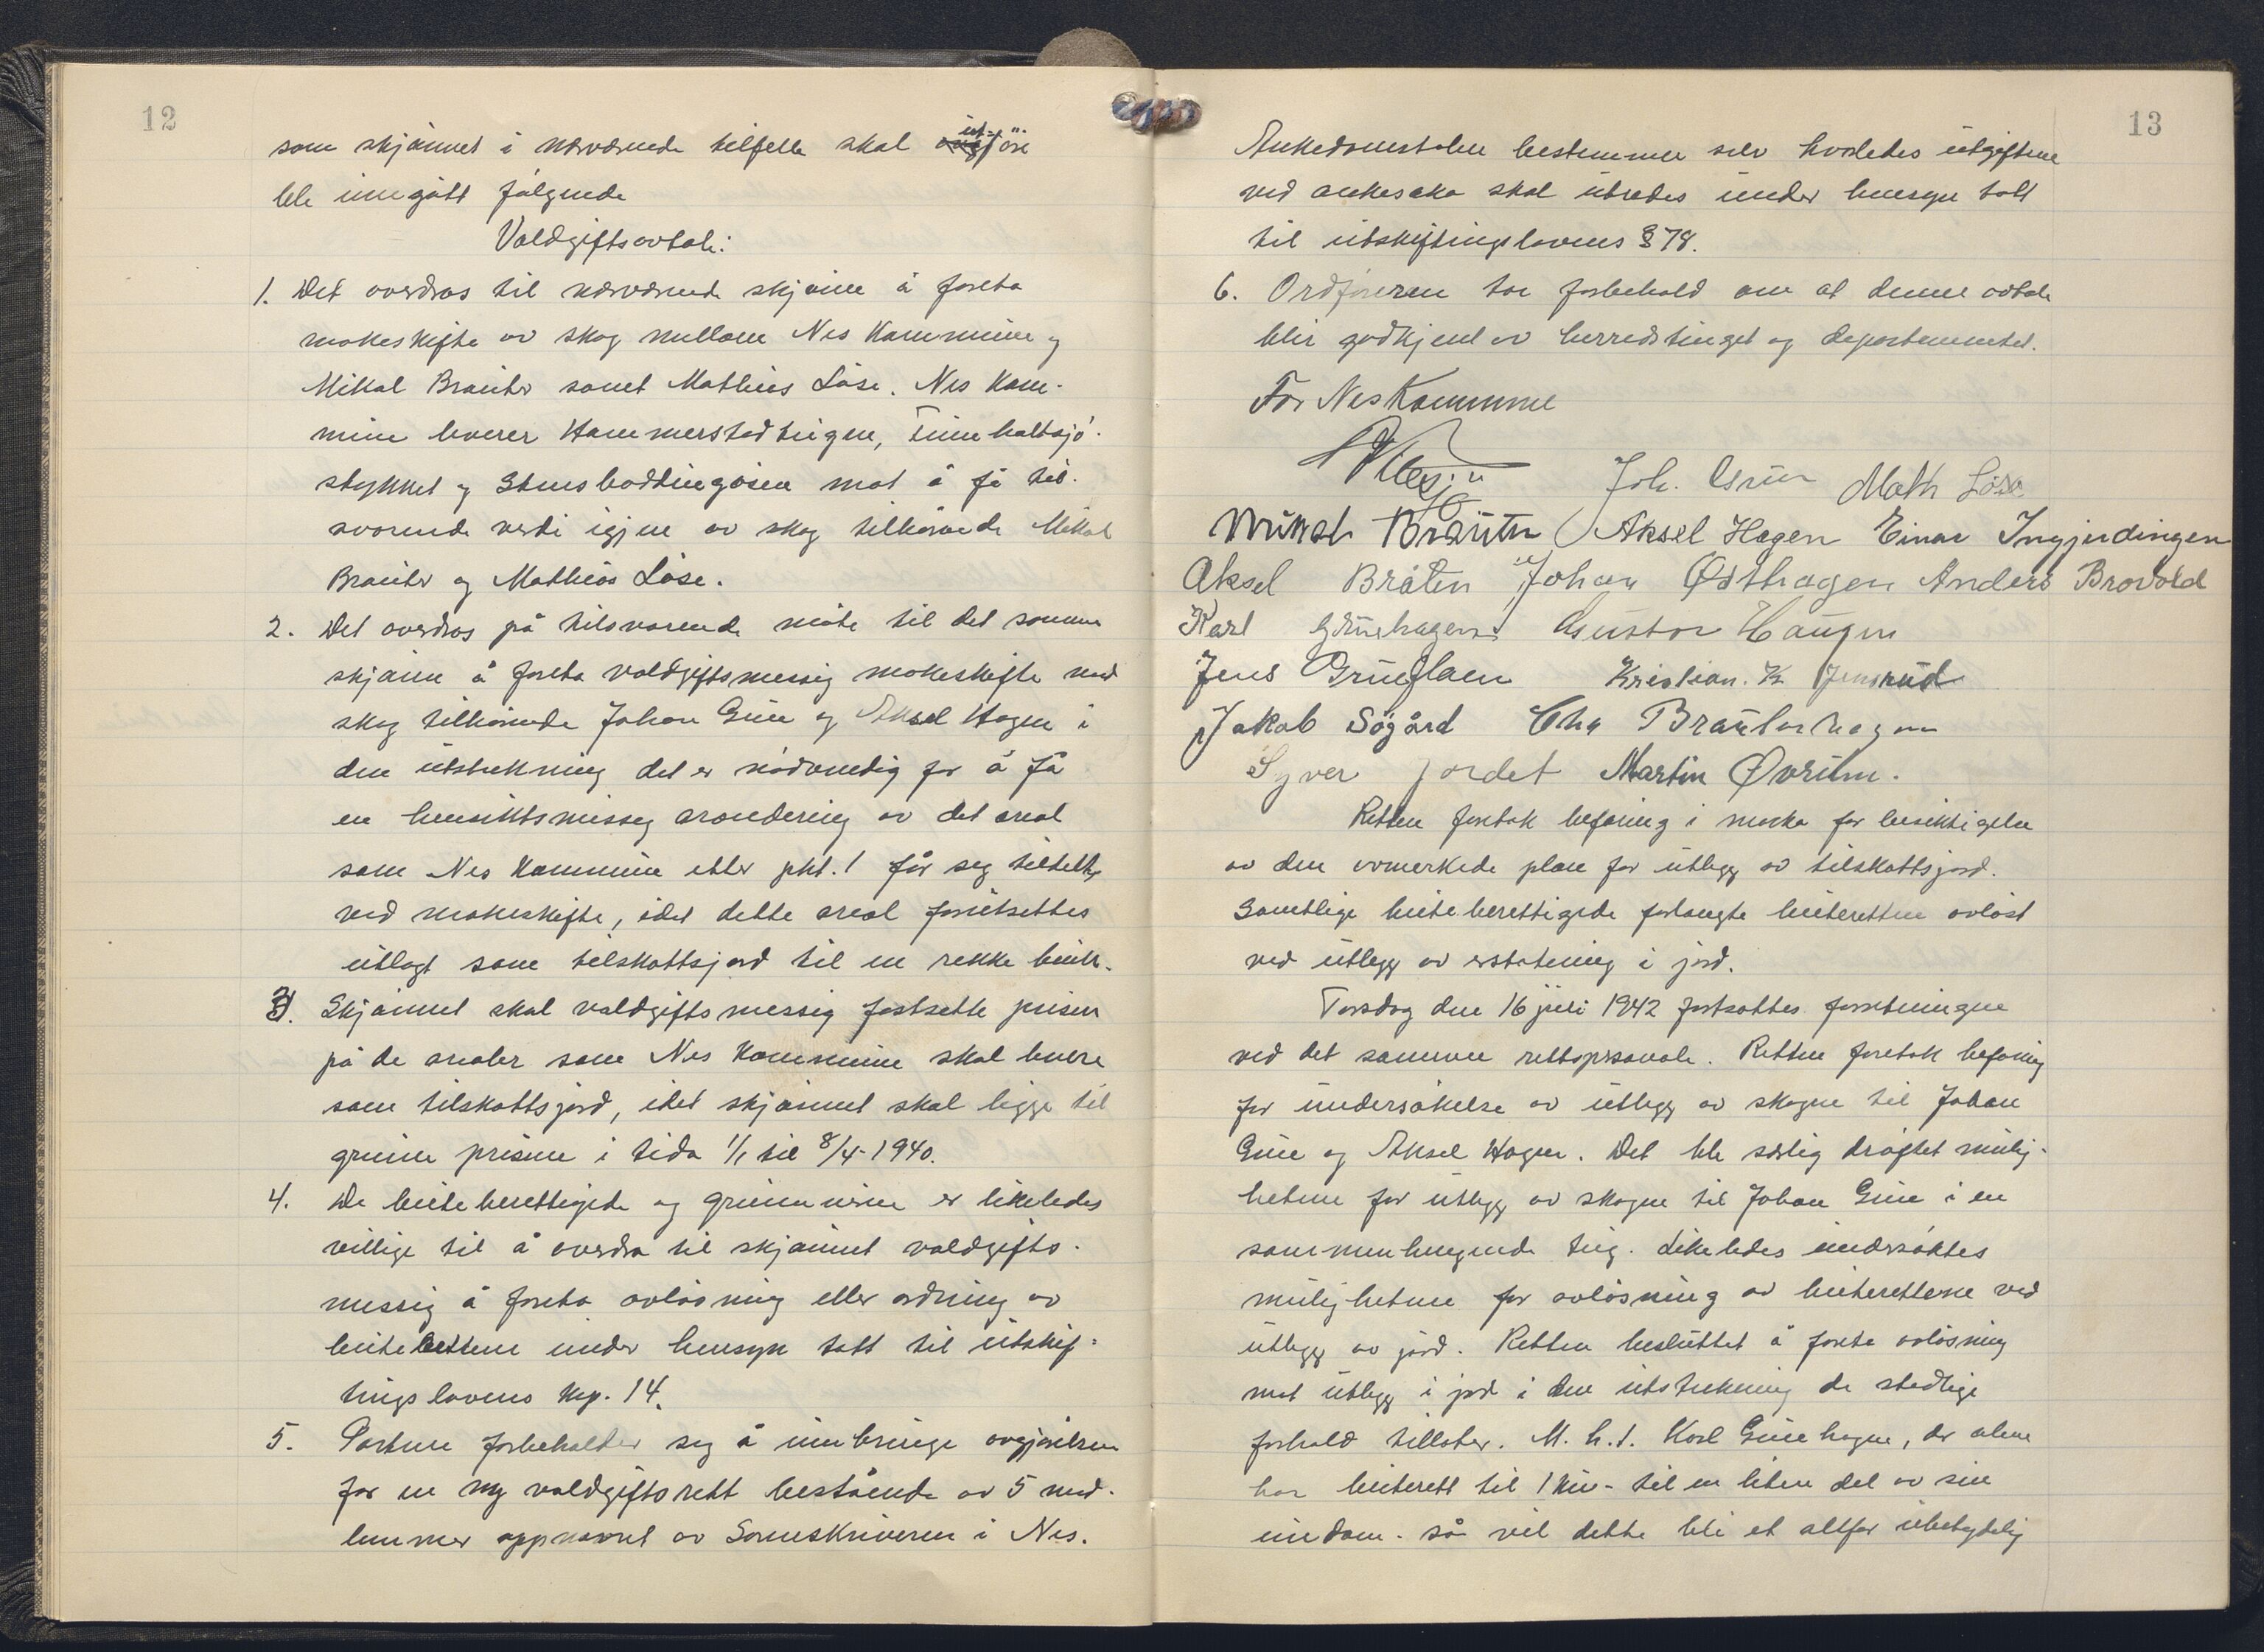 12
som skjønnet i nærværende tilfelle skal utføre
ble inngått følgende
Voldgiftsavtale:
1. Det overdras til nærværende skjønn å foreta
makeskifte av skog mellom Nes Kommune og
Mikal Brauter samt Mathias Løse. Nes Kom-
mune leverer Hammerstadteigen, Tunnhaltsjø-
stykket og Stensboddingåsen mot å få til-
svarende verdi igjen av skog tilhørende Mikal
Brauter og Mathias Løse.
2. Det overdras på tilsvarende måte til det samme
skjønn å foreta voldgiftsmessig makeskifte med
skog tilhørende Johan Grue og Aksel Hagen i
den utstrekning det er nødvendig for å få
en hensiktsmessig arondering av det areal
som Nes Kommune etter pkt. 1 får seg tildelt
ved makeskifte, idet dette areal forutsettes
utlagt som tilskottsjord til en rekke bruk.
3. Skjønnet skal voldgiftsmessig fastsette prisen
på de arealer som Nes Kommune skal levere
som tilskottsjord, idet skjønnet skal legge til
grunn prisene i tida 1/1 til 8/4-1940.
4. De beiteberettigede og grunneierne er likeledes
villige til å overdra til skjønnet voldgifts-
messig å foreta avløsning eller ordning av
beiterettene under hensyn tatt til utskif-
tingslovens kap. 14.
5. Partene forbeholder seg å innbringe avgjørelsen
for en ny voldgiftsrett bestående av 5 med-
lemmer oppnevnt av Sorenskriveren i Nes.
13
Ankedomstolen bestemmer selv hvorledes utgiftene
ved ankesaka skal utredes under hensyn tatt
til utskiftingslovens § 78.
6. Ordføreren tar forbehold om at denne avtale
blir godkjent av herredstinget og departementet.
For Nes Kommune
Joh. Grue Math Løse
Mikal Brauter Aksel Hagen Einar Ingjerdingen
Aksel Bråten Johan Østhagen Anders Brovold
Karl Gruehagen Gustav Haugen
Jens Grueflaen Kristian. K. Jensrud
Jakob Søgård Chr Brauterhagen
Syver Jordet Martin Øvrum.
Retten foretok befaring i marka for besiktigelse
av den avmerkede plan for utlegg av tilskottsjord.
Samtlige beiteberettigede forlangte beiteretten avløst
ved utlegg av erstatning i jord.
Torsdag den 16 juli 1942 fortsattes forretningen
ved det samme rettspersonale. Retten foretok befaring
for undersøkelse av utlegg av skogen til Johan
Grue og Aksel Hagen. Det ble særlig drøftet mulig-
hetene for utlegg av skogen til Johan Grue i en
sammenhengende teig. Likeledes undersøktes
mulighetene for avløsning av beiterettene ved
utlegg av jord. Retten besluttet å foreta avløsning
mot utlegg i jord i den utstrekning de stedlige
forhold tillater. M. h. t. Karl Gruehagen, der alene
har beiterett til 1 ku - til en liten del av sin
eiendom - så vil dette bli et altfor ubetydelig